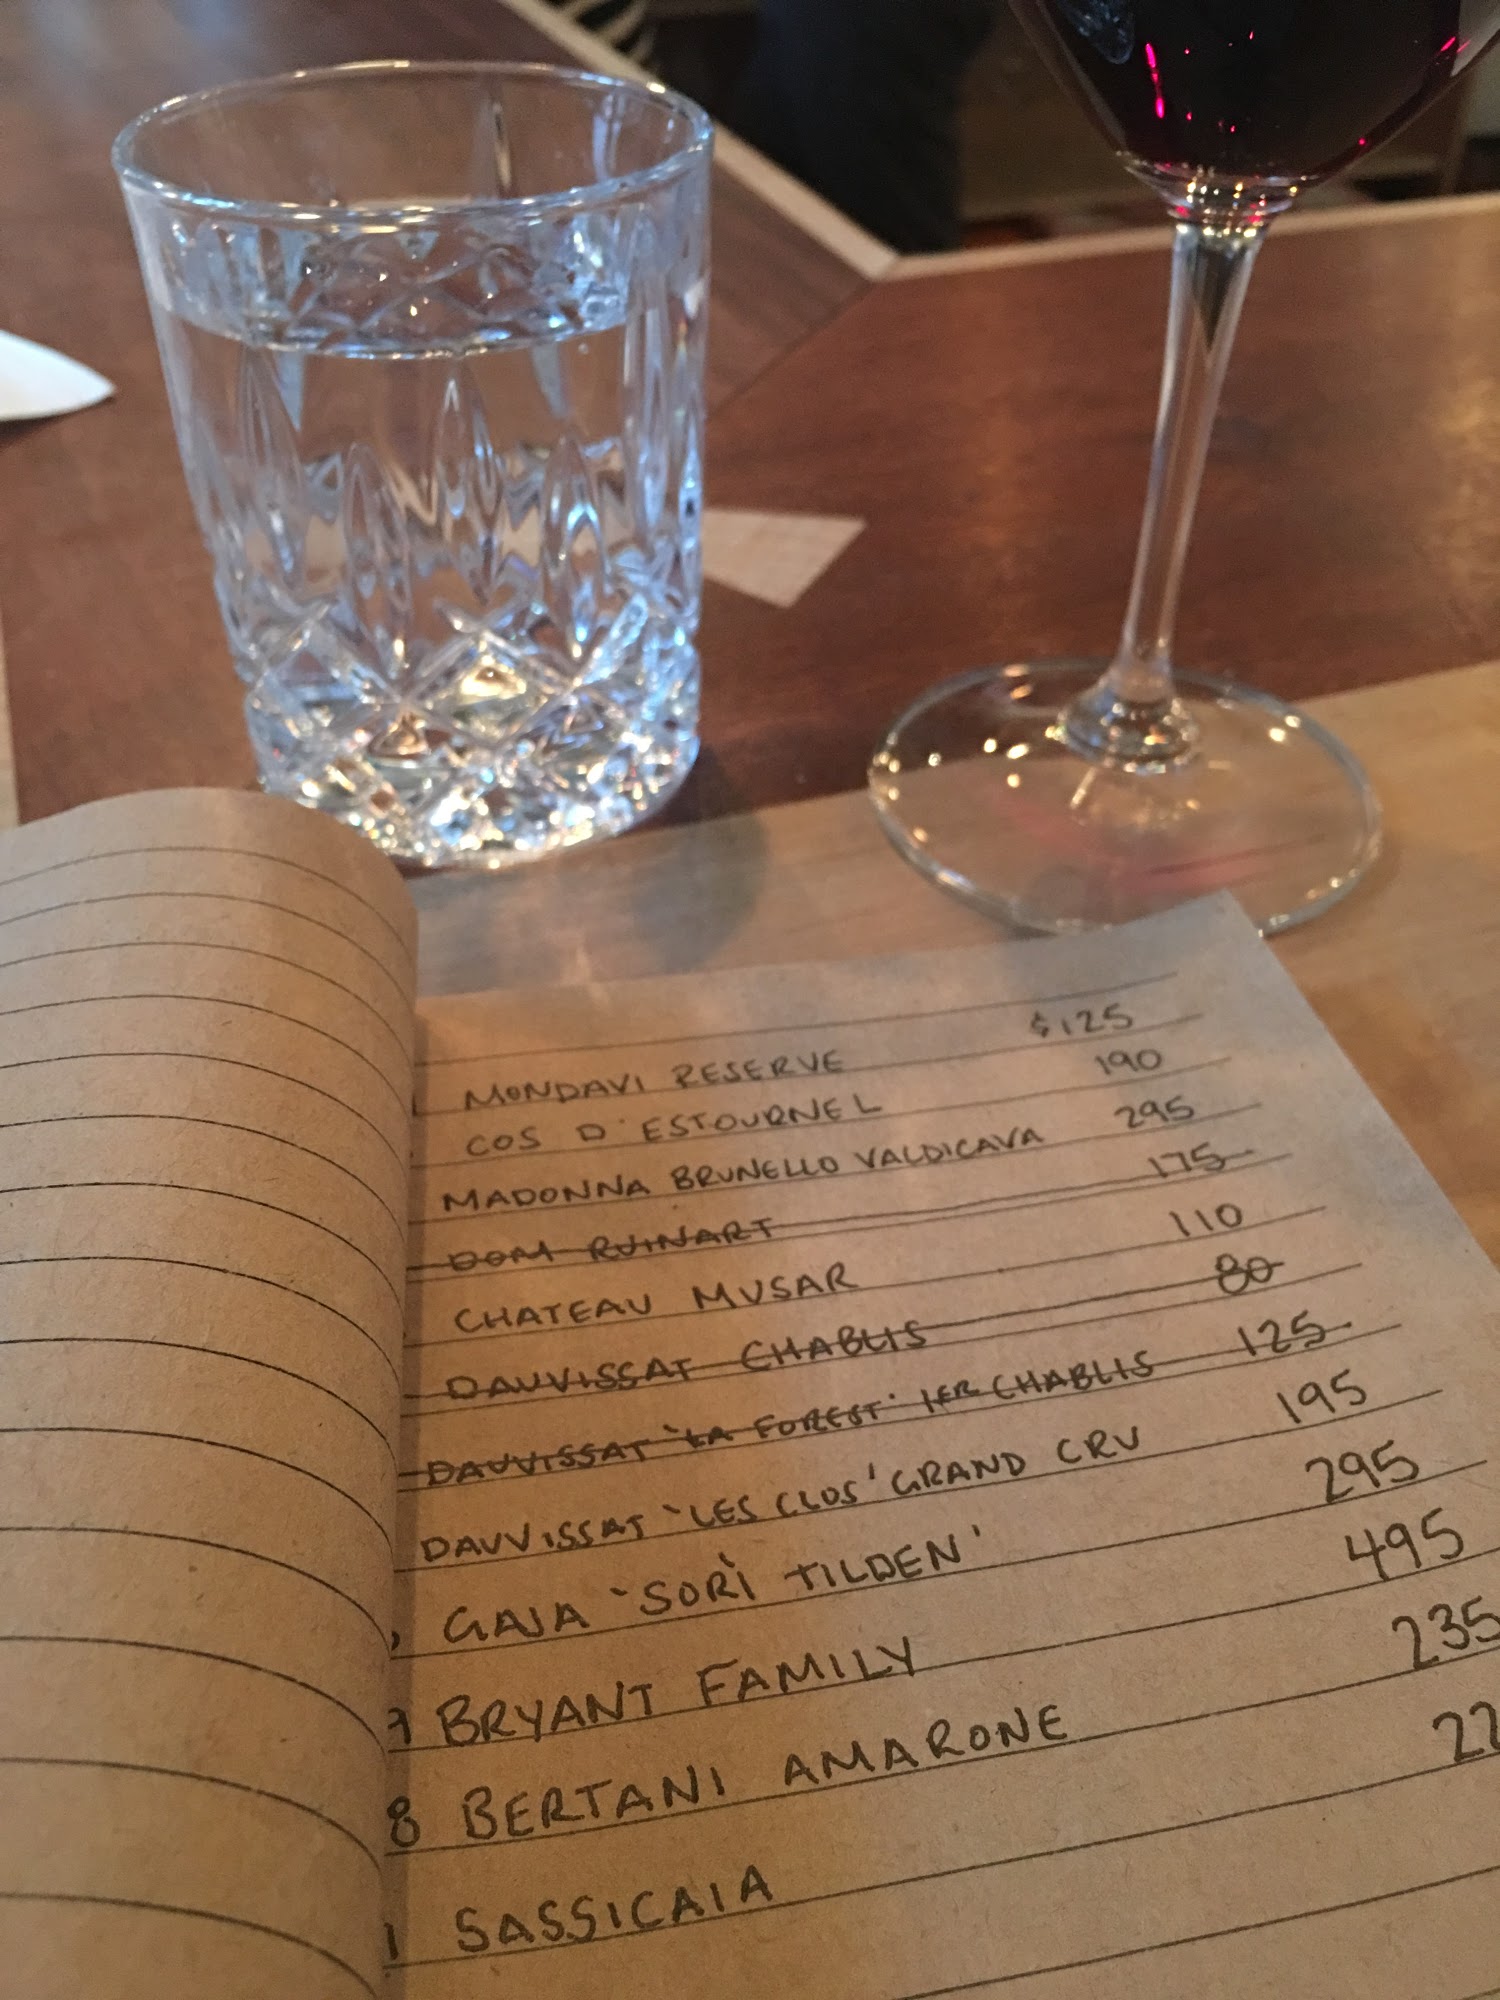 MONDAVI RESERVE $125
COS D'ESTOURNEL 190
MADONNA BRUNELLO VALDICAVA 295
DOM RUINART 175
CHATEAU MUSAR 110
DAUVISSAT CHABLIS 80
DAUVISSAT 'LA FOREST' 1ER CHABLIS 125
DAUVISSAT 'LES CLOS' GRAND CRU 195
GAJA 'SORÌ TILDEN' 295
BRYANT FAMILY 495
8 BERTANI AMARONE 235
1 SASSICAIA 22